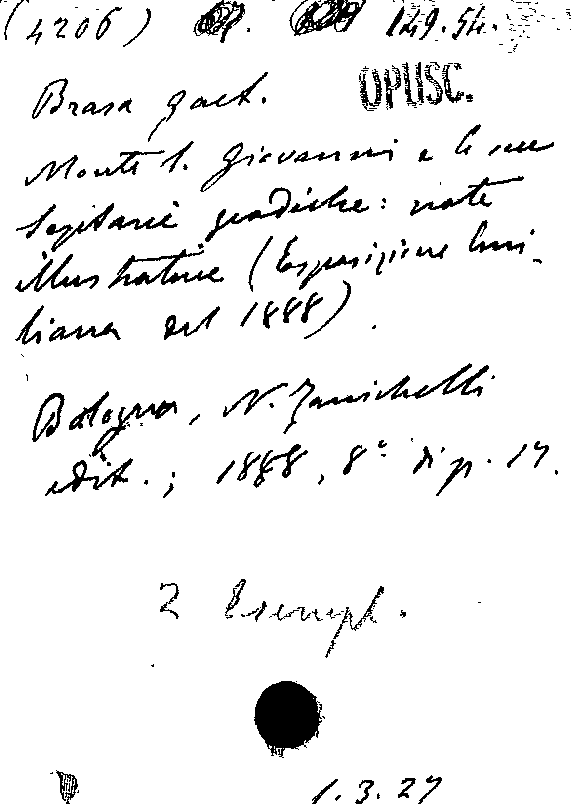 (4206) 149.54.
OPUSC.
Brasa Gaet.
Monte S. Giovanni e le sue
geodiche: note
illustrative (Esposizione Emi-
liana del 1888).
Bologna, N. Zanichelli
edit.; 1888, 8° di p. 17.
2 Esempl.
1.3.27